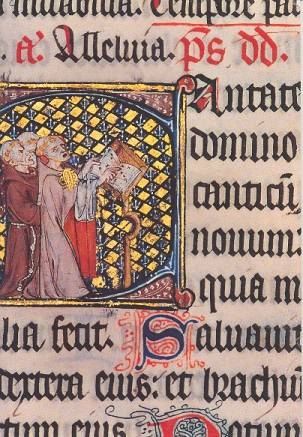 mirabilia. Tempore pas
a. Alleluia. ps dd.
Cantate
domino
canticū
nouum:
quia m
lia fecit. Saluaui
dextera eius: et brachiū
tum eius. Notum